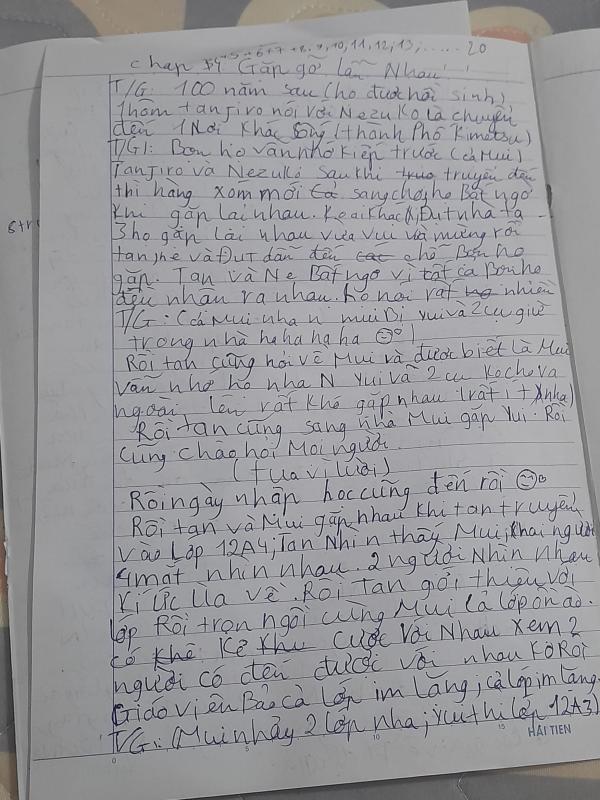 chap 4+5+6+7+8,9,10,11,12,13,.....20
Gặp gỡ lẫn Nhau!
T/G: 100 năm sau (họ được hồi sinh)
1 hôm tanjiro nói với Nezuko là chuyển
đến 1 Nơi khác sống (thành Phố Kimetsu)
T/G1: Bọn họ vẫn nhớ kiếp trước (cả Mui)
Tanjiro và Nezuko sau khi truyền đến
thì hàng xóm mới sang chơi họ Bất ngờ
khi gặp lại nhau. Ke ai khác
3 họ gặp lại nhau vừa vui và mừng rồi
tanjhe và Đut dẫn đến chỗ Bọn họ
gặp. Tan và Ne Bất ngờ vì tất cả Bọn họ
đều nhận ra nhau. Ko nói rất nhiên
T/G: (cả Mui nha n mui Bị Yui và 2 cụ giữ
trong nhà ha ha ha ha
Rồi tan cũng hỏi về Mui và được biết là Mui
vẫn nhớ họ nha N Yui và 2 cụ Ko cho va
ngoài, lên rất khó gặp nhau (rất ít nha)
Rồi tan cũng sang nhà Mui gặp Yui. Rồi
cũng chào hỏi Mọi người.
(tua vì lười)
Rồi ngày nhập học cũng đến rồi
Rồi tan và Mui gặp nhau khi tan truyền
vào Lớp 12A4; Tan Nhìn thấy Mui, hai người
4 mắt nhìn nhau. 2 người Nhìn nhau
Kí ức ùa về. Rồi Tan gới thiệu với
lớp Rồi trọn ngồi cùng Mui là lớp ồn ào.
có kẻ cược với Nhau xem 2
người có đến được với nhau Kở Rồi
Giáo viên Bảo cả lớp im lặng, cả lớp im lặng.
T/G: (Mui nhảy 2 lớp nha; Yui thì lớp 12A3)
HẢI TIẾN
0 5 10 15